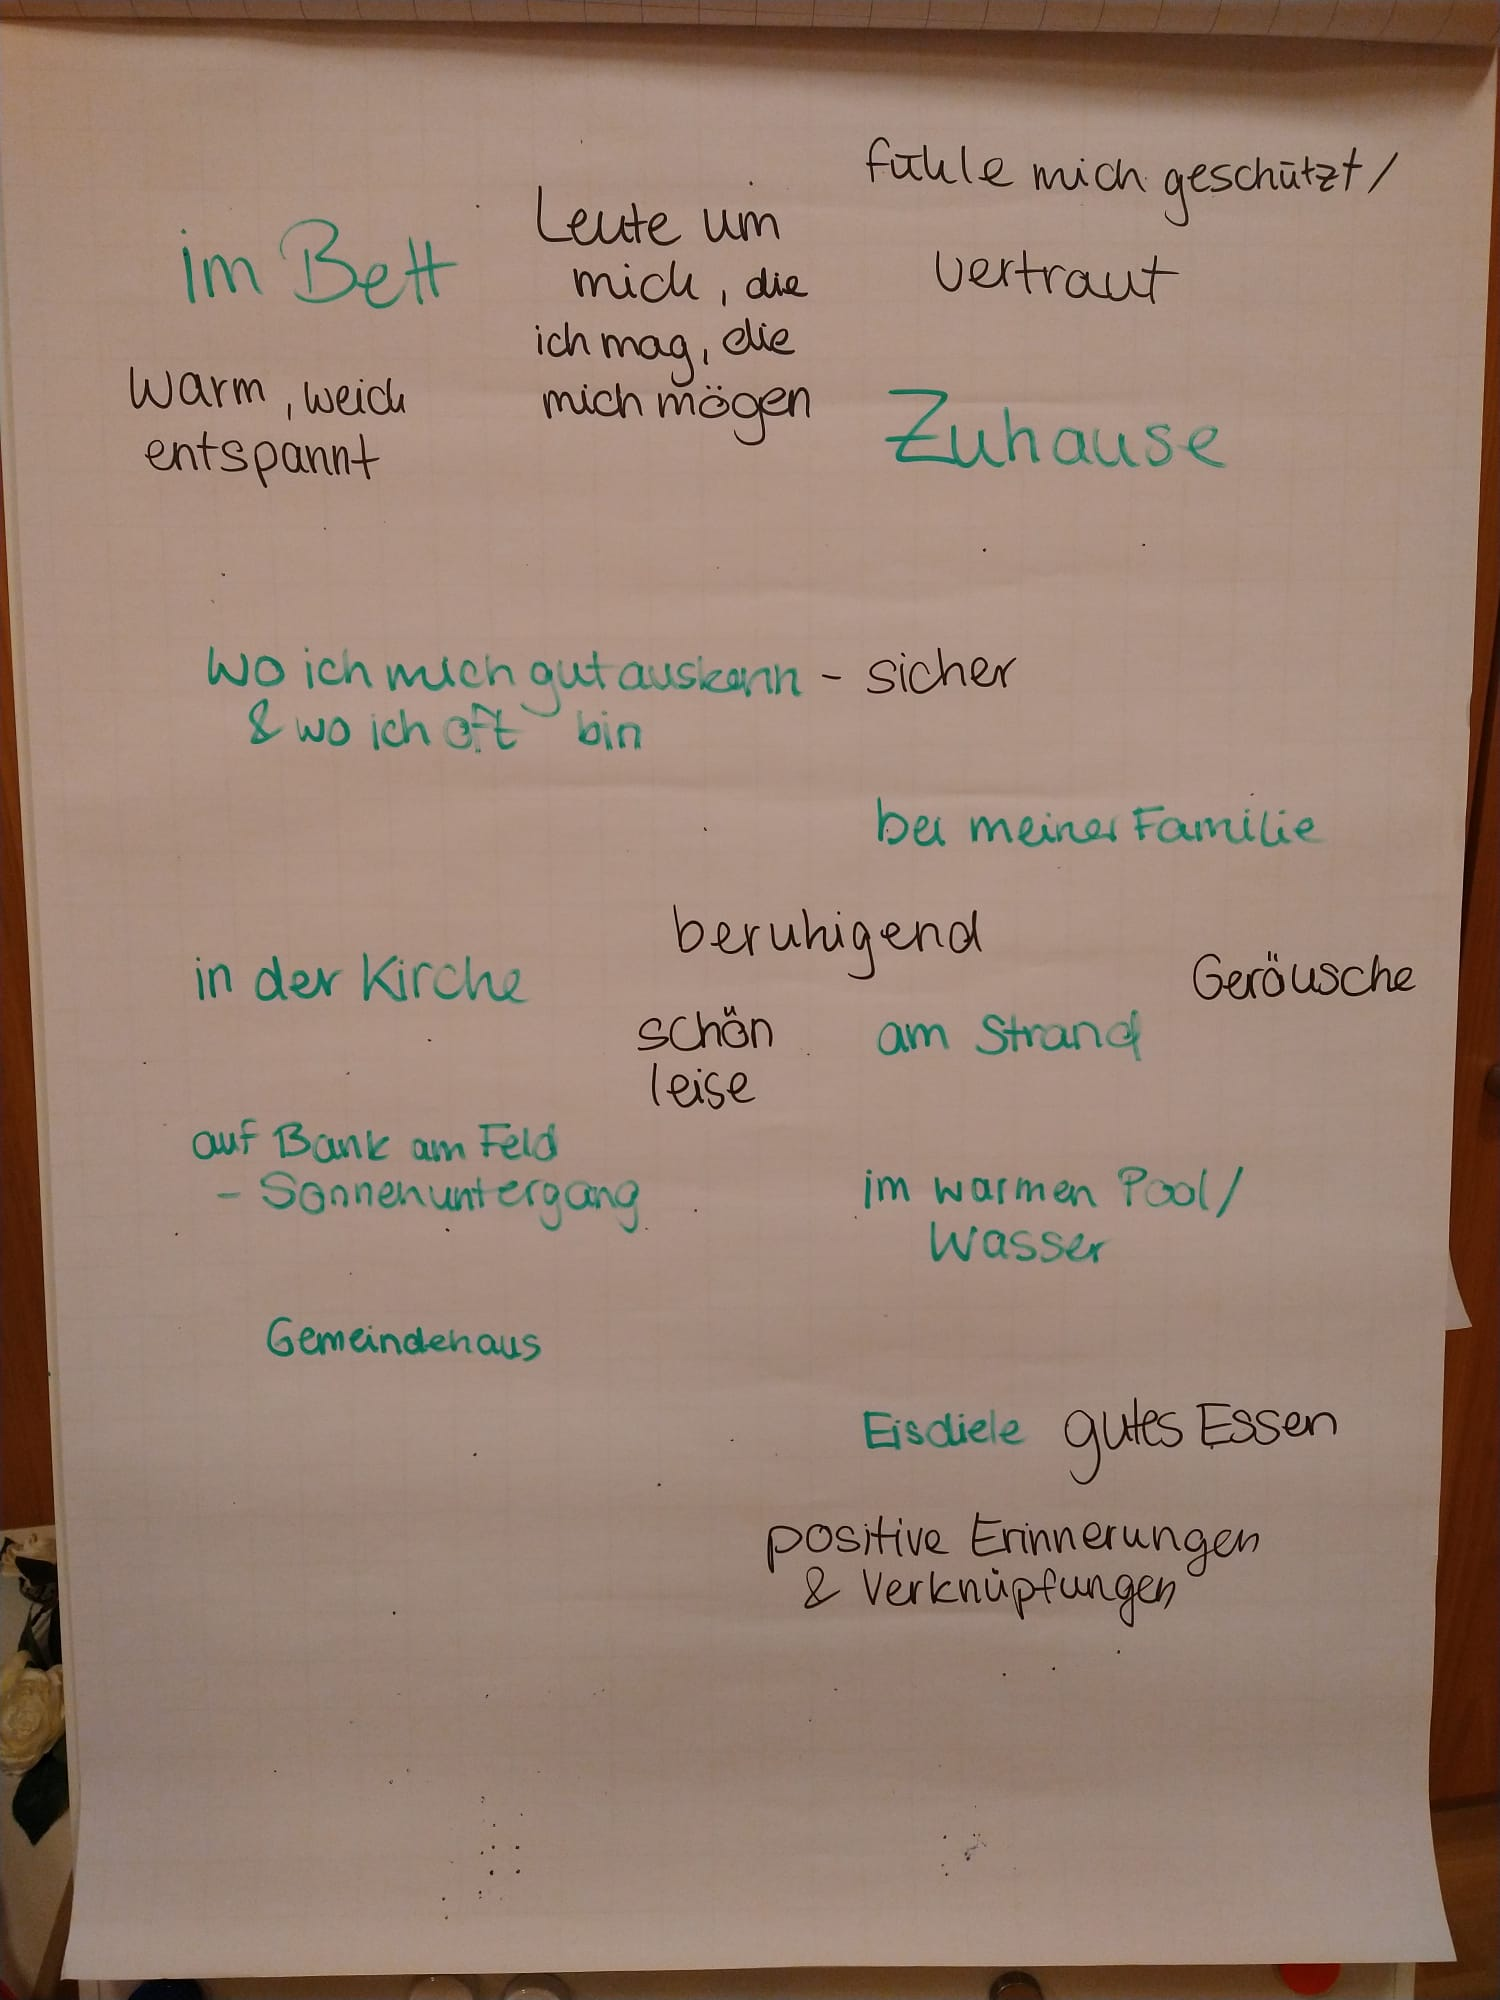 fühle mich geschützt/
vertraut
Leute um
mich, die
ich mag, die
mich mögen
im Bett
warm, weich
entspannt
Zuhause
wo ich mich gut auskenn - sicher
& wo ich oft bin
bei meiner Familie
beruhigend
in der Kirche
Geräusche
schön
leise
am Strand
auf Bank am Feld
- Sonnenuntergang
im warmen Pool/
Wasser
Gemeindehaus
Eisdiele gutes Essen
positive Erinnerungen
& Verknüpfungen